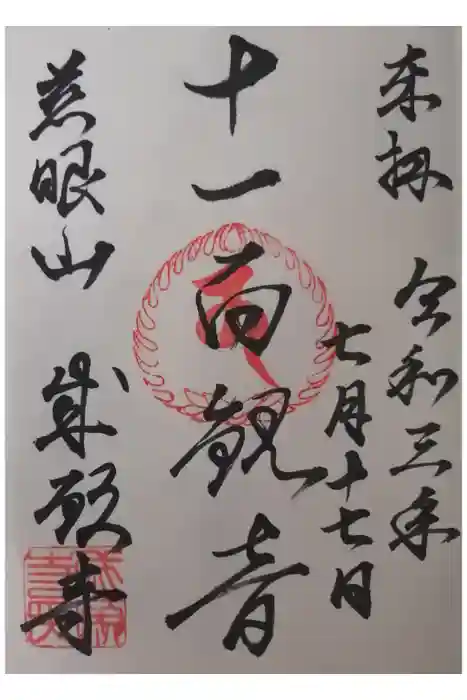 奉拝 令和三年
七月十七日
十一面観音
慈眼山 成願寺